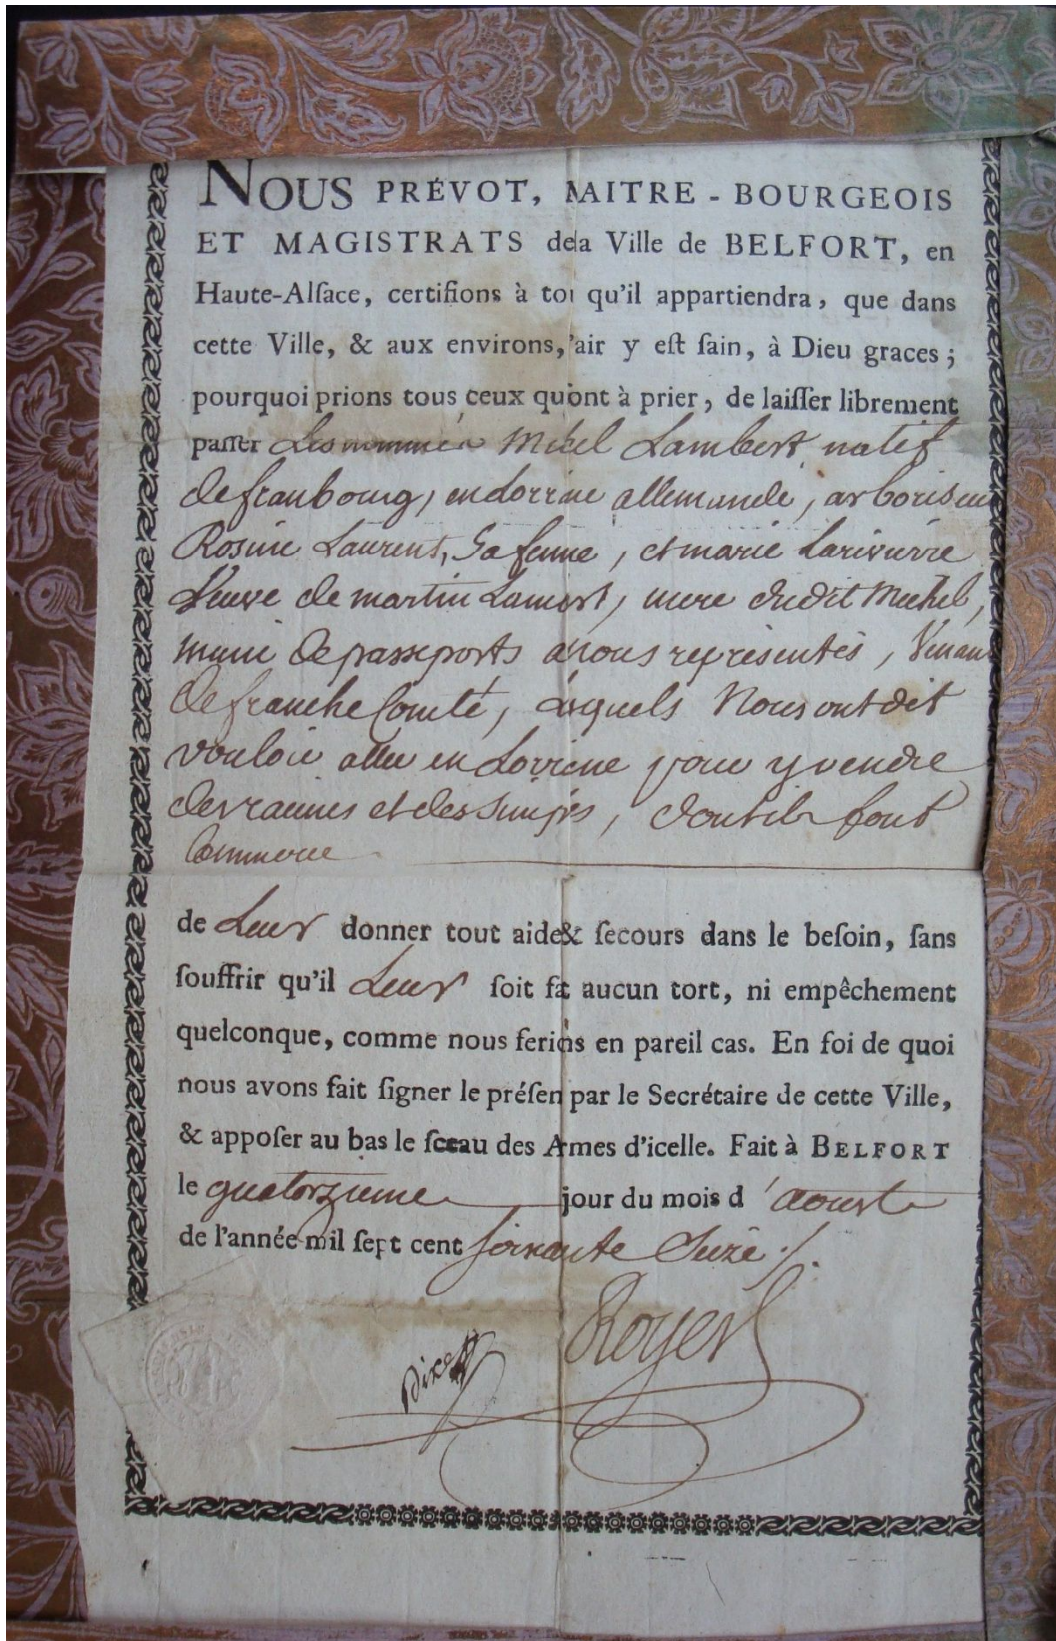 NOUS PRÉVOT, MAITRE-BOURGEOIS
ET MAGISTRATS de la Ville de BELFORT, en
Haute-Alſace, certifions à tou qu'il appartiendra, que dans
cette Ville, & aux environs, l'air y eſt ſain, à Dieu graces ;
pourquoi prions tous ceux qui ont à prier, de laiſſer librement
paſſer Les nommés Michel Lambert natif
de fraubourg, en Lorrine allemande,
Rosine Laurent, Sa femme, et marie Larivierre
Veuve de martin Lambert, mere dudit Michel,
muni de passeports a nous representés, Venant
de franche Comté, Lesquels Nous ont dit
vouloir aller en Lorrine pour y vendre
des et des Singes, dont ils font
Commerce
de Leur donner tout aide & ſecours dans le beſoin, ſans
ſouffrir qu'il Leur ſoit fait aucun tort, ni empêchement
quelconque, comme nous ferions en pareil cas. En foi de quoi
nous avons fait ſigner le préſent par le Secrétaire de cette Ville,
& appoſer au bas le ſceau des Armes d'icelle. Fait à BELFORT
le quatorzieme jour du mois d'aoust
de l'année mil ſept cent soixante Seize ./.
Royer